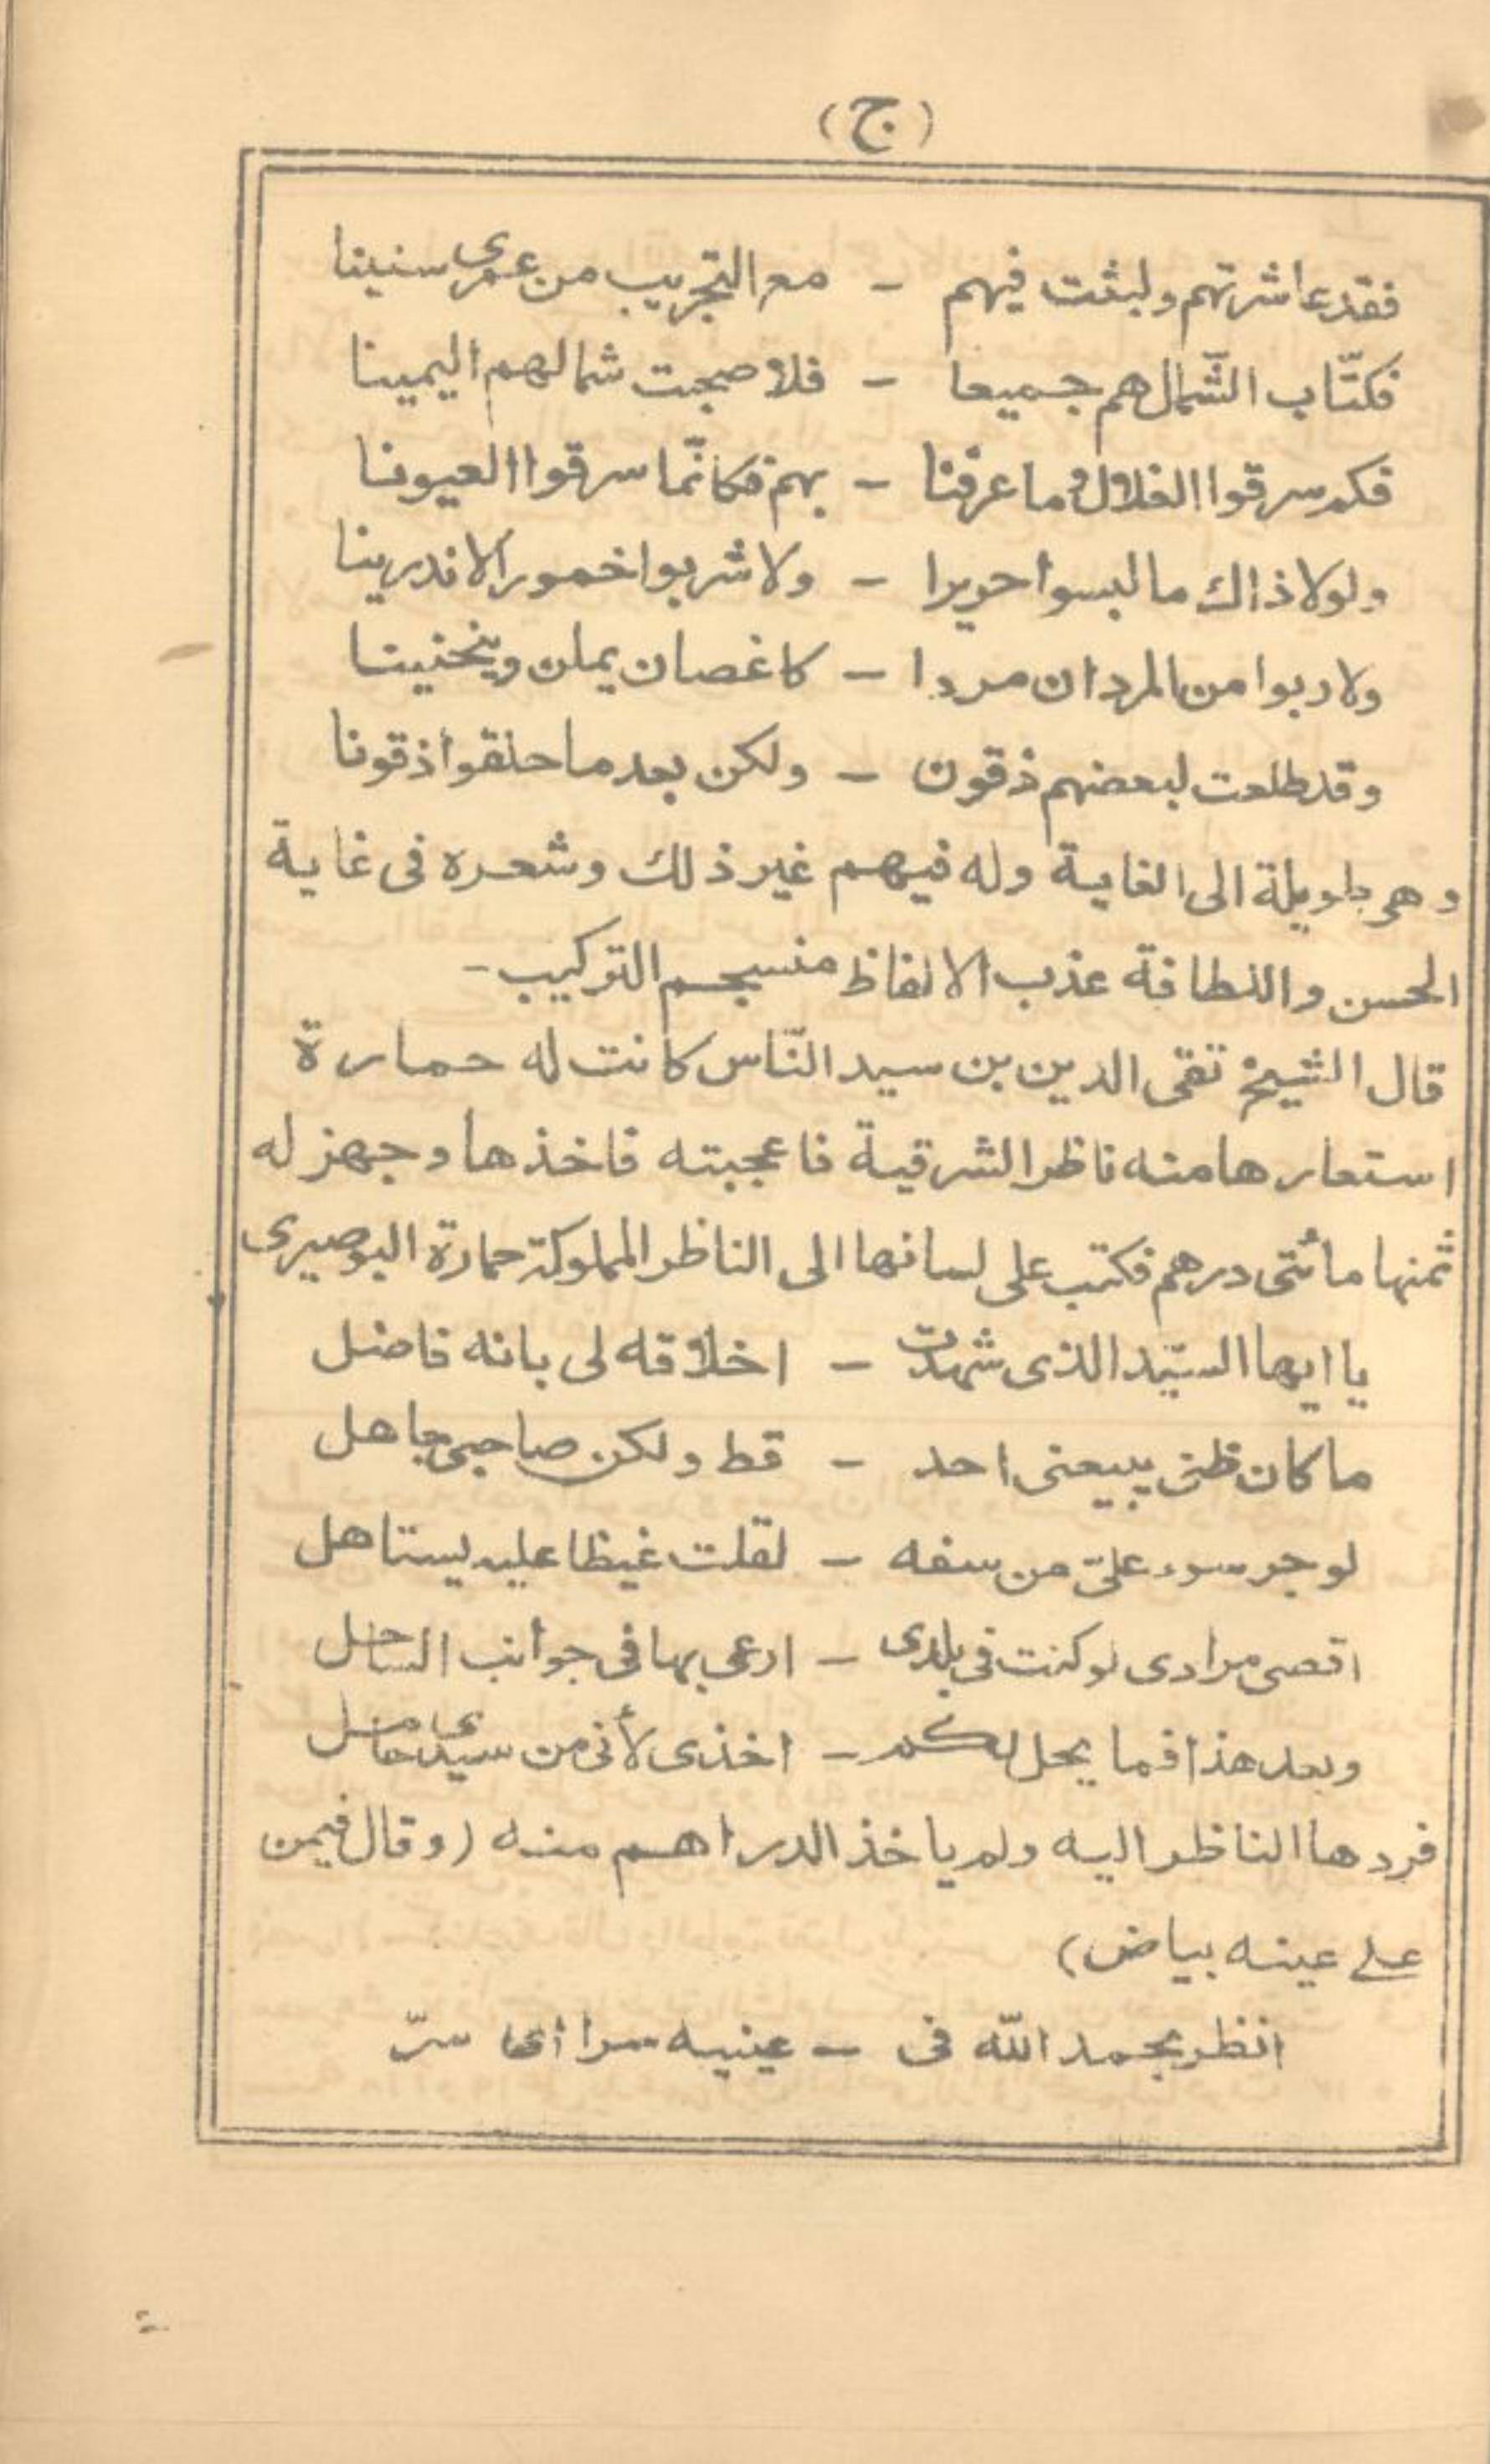 (ج)
فقد عاشرتهم ولبثت فيهم - مع التجريب من عمرى سنينا
فكتّاب الشّمال هم جميعا - فلا صحبت شمالهم اليمينا
فكم سرقوا الغلال وما عرفنا - بهم فكانّما سرقوا العيونا
ولولا ذاك ما لبسوا حريرا - ولا شربوا خمور الاندرينا
ولا ربوا من المردان مردا - كاغصان يملن وينحنينا
وقد طلعت لبعضهم ذقون - ولكن بعد ما حلقوا ذقونا
وهى طويلة الى الغاية وله فيهم غير ذلك وشعره فى غاية
الحسن واللطافة عذب الالفاظ منسجم التركيب -
قال الشيخ تقى الدين بن سيد النّاس كانت له حمارة
استعارها منه ناظر الشرقية فاعجبته فاخذها وجهز له
ثمنها مأتى درهم فكتب على لسانها الى الناظر المملوكة حمارة البوصيرى
يا ايها السيّد الذى شهدت - اخلاقه لى بانه فاضل
ما كان ظنى يبيعنى احد - قط ولكن صاحبى جاهل
لو جرسوه علىّ من سفه - لقلت غيظا عليه يستاهل
اقصى مرادى لو كنت فى بلدى - ارعى بها فى جوانب الساحل
وبعد هذا فما يحل لكم - اخذى لأنى من سيدى حامل
فردها الناظر اليه ولم ياخذ الدراهم منه (وقال فيمن
على عينه بياض)
انظر بحمد الله فى - عينيه سرا اى سرّ